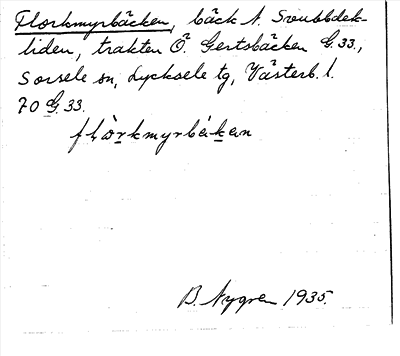 Florkmyrbäcken, bäck N. Snubbdek-
liden, trakten Ö. Gertsbäcken G.33.,
Sorsele sn, Lycksele tg, Västerb. l.
70 G 33.
flòrkmyrbákan
B. Nygren 1935.